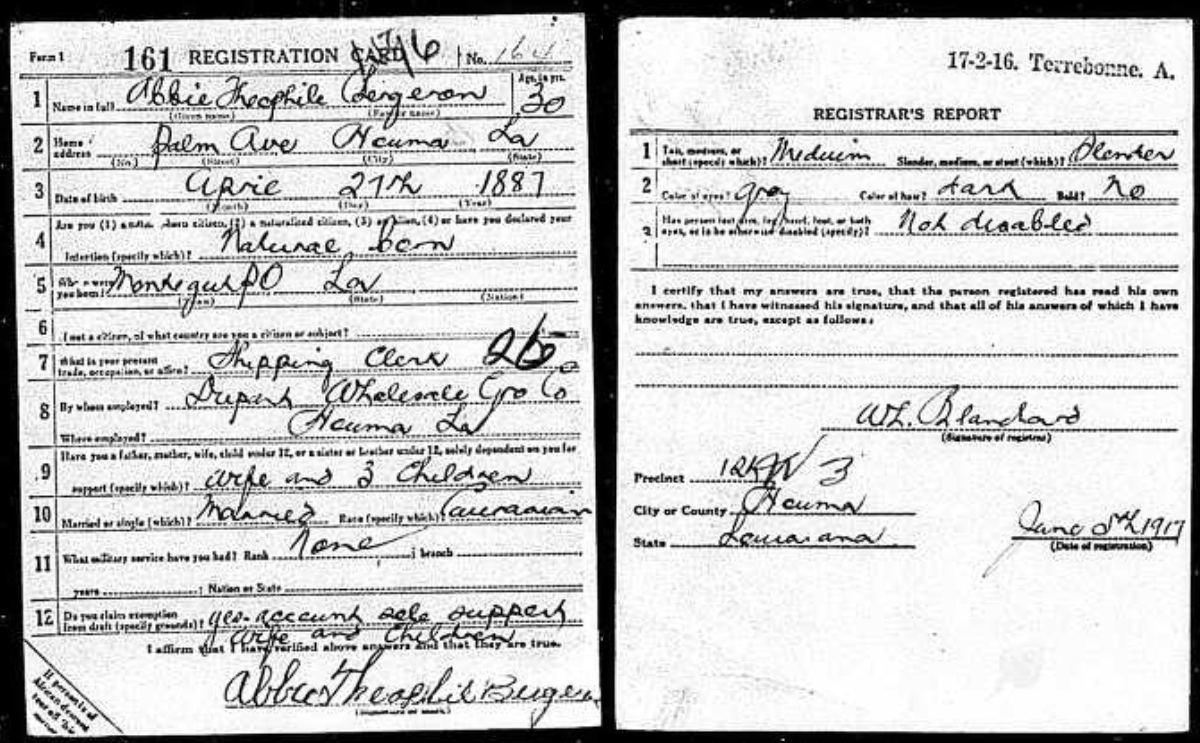 Form 1 161 REGISTRATION CARD No. 164
1 Name in full Abbie Theophile Bergeron Age, in yrs. 30
(Given name) (Family name)
2 Home address Palm Ave Houma La
(No.) (Street) (City) (State)
3 Date of birth April 27th 1887
(Month) (Day) (Year)
Are you (1) a natural born citizen, (2) a naturalized citizen, (3) an alien, (4) or have you declared your
4 intention (specify which)? Natural born
5 Where were you born? PO La
(Town) (State) (Nation)
6 If not a citizen, of what country are you a citizen or subject?
7 What is your present trade, occupation, or office? Shipping Clerk 26
8 By whom employed? Dupont Wholesale Gro Co
Where employed? Houma La
9 Have you a father, mother, wife, child under 12, or a sister or brother under 12, solely dependent on you for
support (specify which)? wife and 3 Children
10 Married or single (which)? Married Race (specify which)? Caucasian
11 What military service have you had? Rank None ; branch
years ; Nation or State
12 Do you claim exemption from draft (specify grounds)? yes-account sole support
wife and Children
I affirm that I have verified above answers and that they are true.
Abbie Theophile Bergeron
If person is of African descent, tear off this corner
17-2-16. Terrebonne. A.
REGISTRAR'S REPORT
1 Tall, medium, or short (specify which)? Meduim Slender, medium, or stout (which)? Slender
2 Color of eyes? gray Color of hair? dark Bald? No
3 Has person lost arm, leg, hand, foot, or both eyes, or is he otherwise disabled (specify)? Not disabled
I certify that my answers are true, that the person registered has read his own
answers, that I have witnessed his signature, and that all of his answers of which I have
knowledge are true, except as follows:
W.L. Blanchard
(Signature of registrar)
Precinct 3
City or County Houma
State Louisiana
June 5th 1917
(Date of registration)